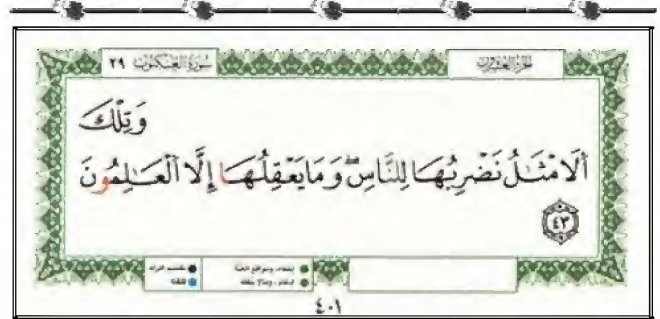 سورة العنكبوت ٢٩
الجزء العشرون
وَتِلْكَ
ٱلْأَمْثَـٰلُ نَضْرِبُهَا لِلنَّاسِ ۖ وَمَا يَعْقِلُهَا إِلَّا ٱلْعَـٰلِمُونَ
٤٣
٤٠١